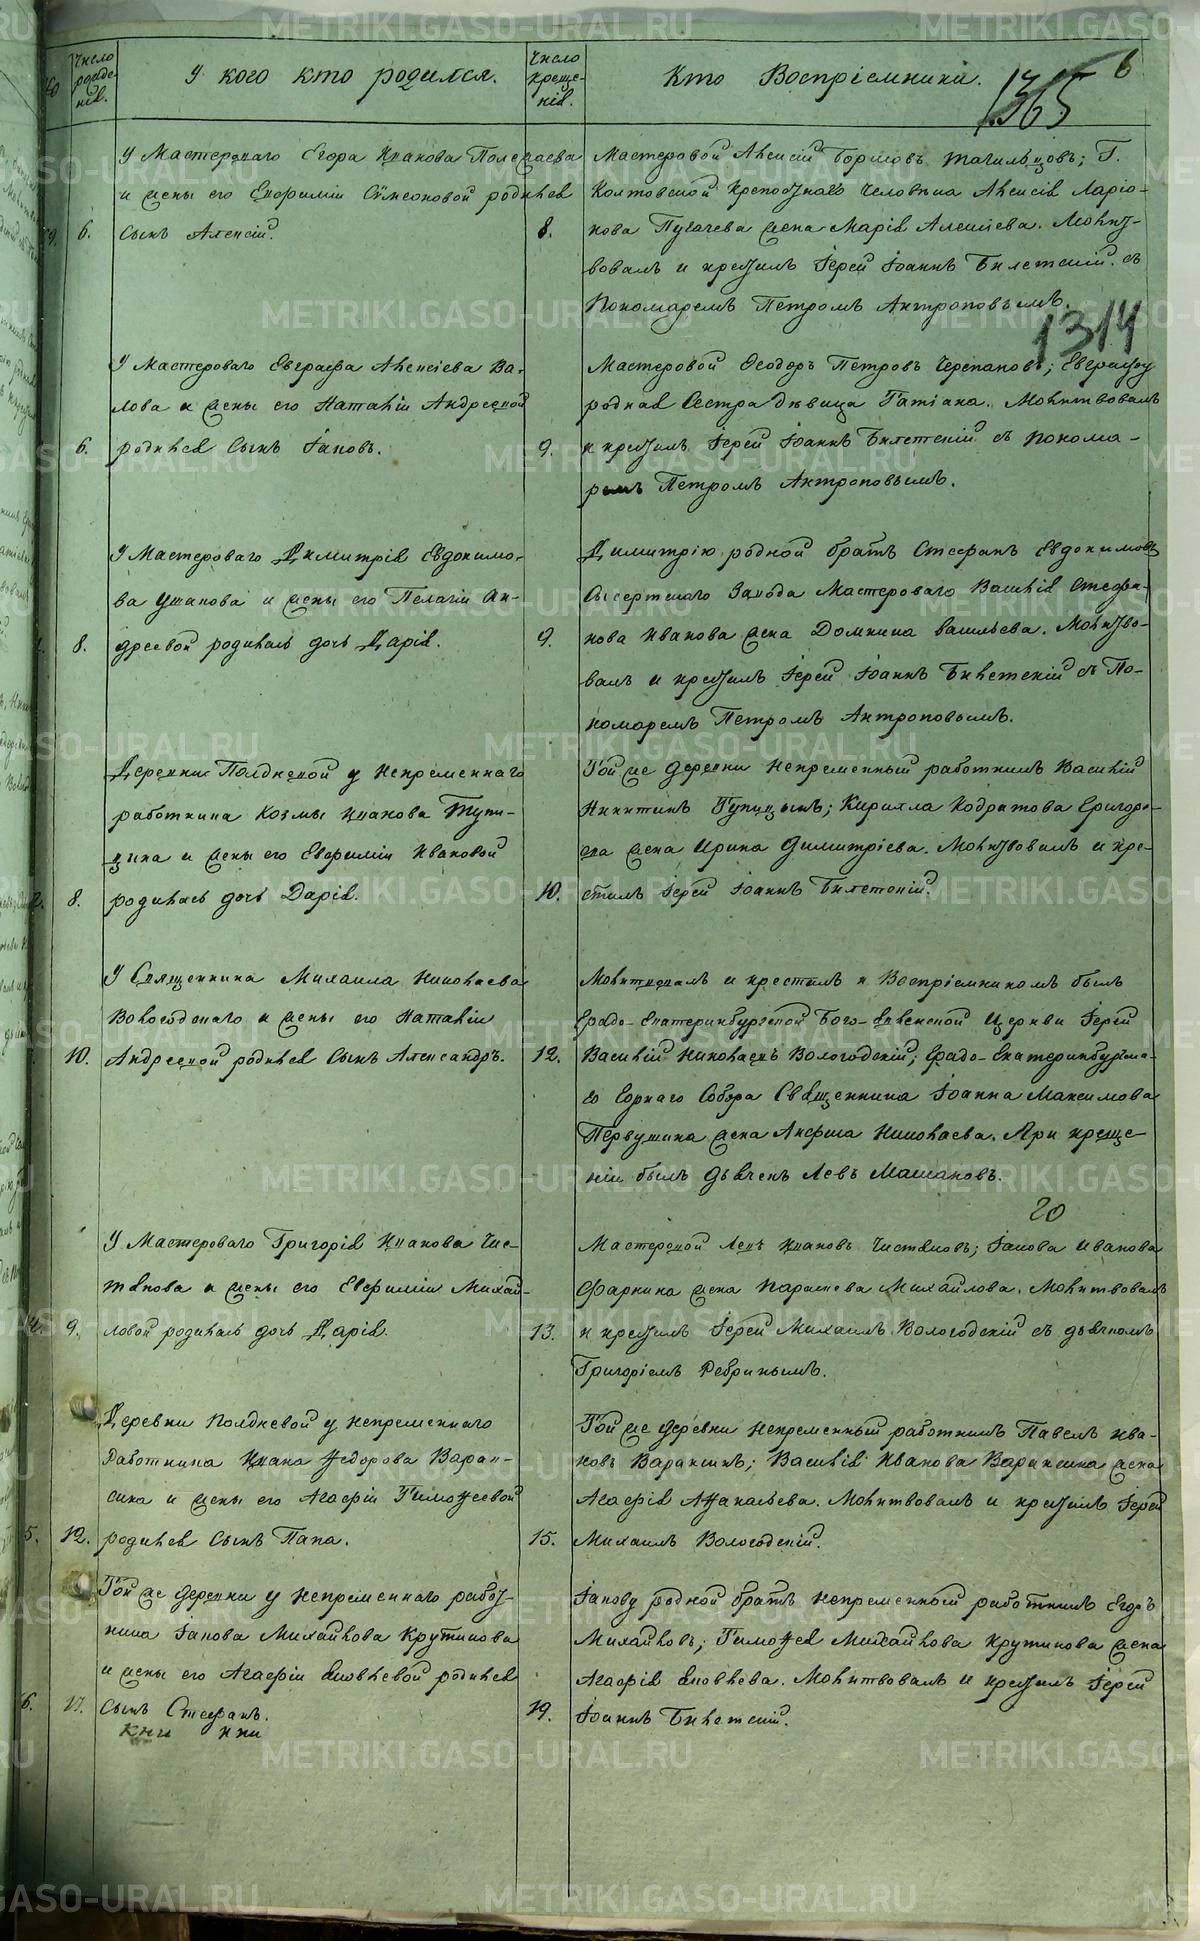 Число рожде-нія.
У кого кто родился.
Число креще-нія.
Кто Воспріемники.
1365
6
У Мастероваго Егора Иванова Полежаева
и жены его Евфиміи Сѵмеоновой родился
6. сынъ Алексій.
8.
Мастеровой Алексій
Колтовской Крепостнаго человѣка Алексія Ларіо-
нова Пугачева жена Марія Алексіева. Молитв-
вовалъ и крестилъ Іерей Іоаннъ Билетскій съ
Пономаремъ Петромъ Антроповымъ.
1314
У Мастероваго Евграфа Алексіева Ва-
лова и жены его Наталіи Андреевой
6. родился сынъ Іаковъ.
9.
Мастеровой Ѳеодоръ Петровъ Черепановъ; Евграфу
родная сестра дѣвица Татіана. Молитвовалъ
и крестилъ Іерей Іоаннъ Билетскій съ понома-
ремъ Петромъ Антроповымъ.
У Мастероваго Димитрія Евдокимо-
ва Ушакова и жены его Пелагіи Ан-
8. дреевой родилась дочь Дарія.
9.
Димитрію родной братъ Стефанъ Евдокимовъ
Сысертскаго Завода Мастероваго Василія Стефа-
нова Иванова жена Домника Васильева. Молитво-
валъ и крестилъ Іерей Іоаннъ Билетскій съ По-
номаремъ Петромъ Антроповымъ.
Деревни Полдневой у непременнаго
работника Козмы Иванова Тупи-
цина и жены его Евфиміи Ивановой
8. родилась дочь Дарія.
10.
Той же деревни непременный работникъ Василій
Никитинъ Тупицынъ; Кирилла Кодратова Григорь-
ева жена Ирина Димитріева. Молитвовалъ и кре-
стилъ Іерей Іоаннъ Билетскій.
У Священника Михаила Николаева
Вологодскаго и жены его Наталіи
10. Андреевой родился сынъ Александръ.
12.
Молитвовалъ и крестилъ и Воспріемникомъ былъ
Градо-Екатеринбургской Бого-явленской церкви Іерей
Василій Николаевъ Вологодскій; Градо-Екатеринбургска-
го Горнаго Собора Священника Іоанна Максимова
Первушина жена Анфиса Николаева. При креще-
ніи былъ дьячекъ Левъ
20
У Мастероваго Григорія Иванова Чис-
тякова и жены его Евфиміи Михай-
9. ловой родилась дочь Дарія.
13.
Мастеровой Левъ Ивановъ Чистяковъ; Іакова Иванова
Фаркина жена Параскева Михайлова. Молитвовалъ
и крестилъ Іерей Михаилъ Вологодскій съ дьячкомъ
Григоріемъ Ребринымъ.
Деревни Полдневой у непременнаго
Работника Ивана Ѳедорова Варак-
сина и жены его Агафіи Тимоѳеевой
5. 12. родился сынъ Папа.
15.
Той же деревни непременный работникъ Павелъ Ива-
новъ Вараксинъ; Василія Иванова Вараксина жена
Агафія Аѳанасьева. Молитвовалъ и крестилъ Іерей
Михаилъ Вологодскій.
Той же деревни у непременнаго работ-
ника Іакова Михайлова Крутикова
и жены его Агафіи Яковлевой родился
6. 17. сынъ Стефанъ.
19.
Іакову родной братъ непременный работникъ Егоръ
Михайловъ; Тимоѳея Михайлова Крутикова жена
Агафія Яковлева. Молитвовалъ и крестилъ Іерей
Іоаннъ Билетскій.